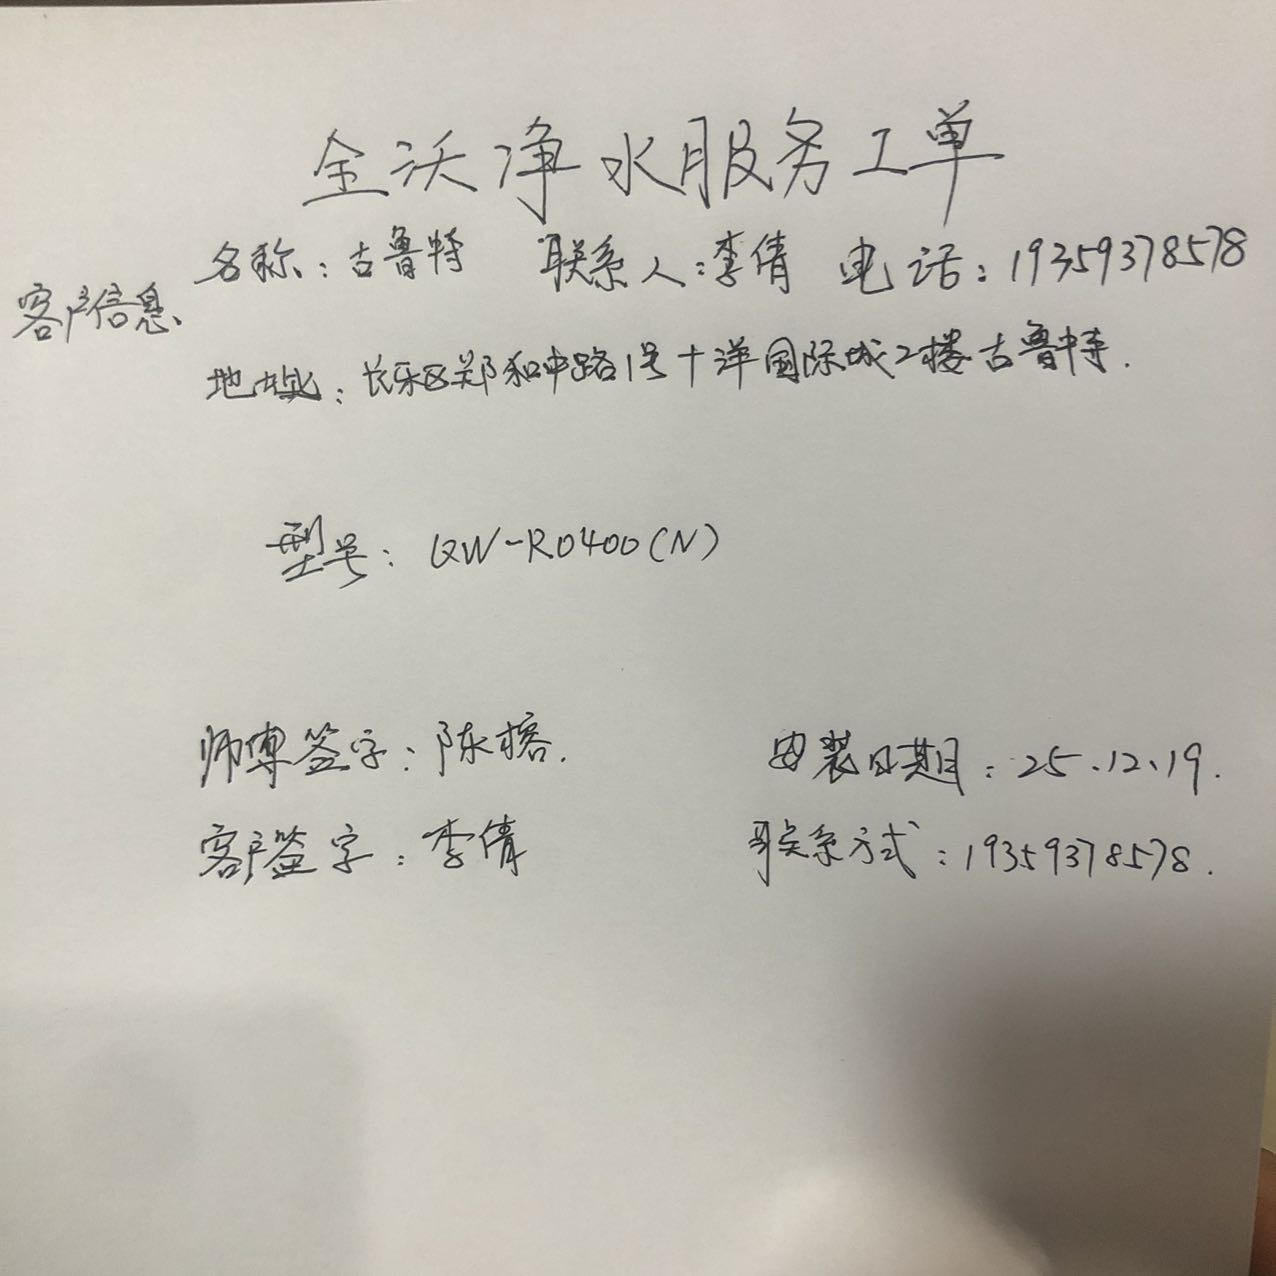 全沃净水服务工单
名称：古鲁特 联系人：李倩 电话：19359378578
客户信息、
地址：长乐区郑和中路1号十洋国际城2楼古鲁特.
型号：QW-RO400(N)
师傅签字：陈榕. 安装日期：25、12、19.
客户签字：李倩 联系方式：19359378578.